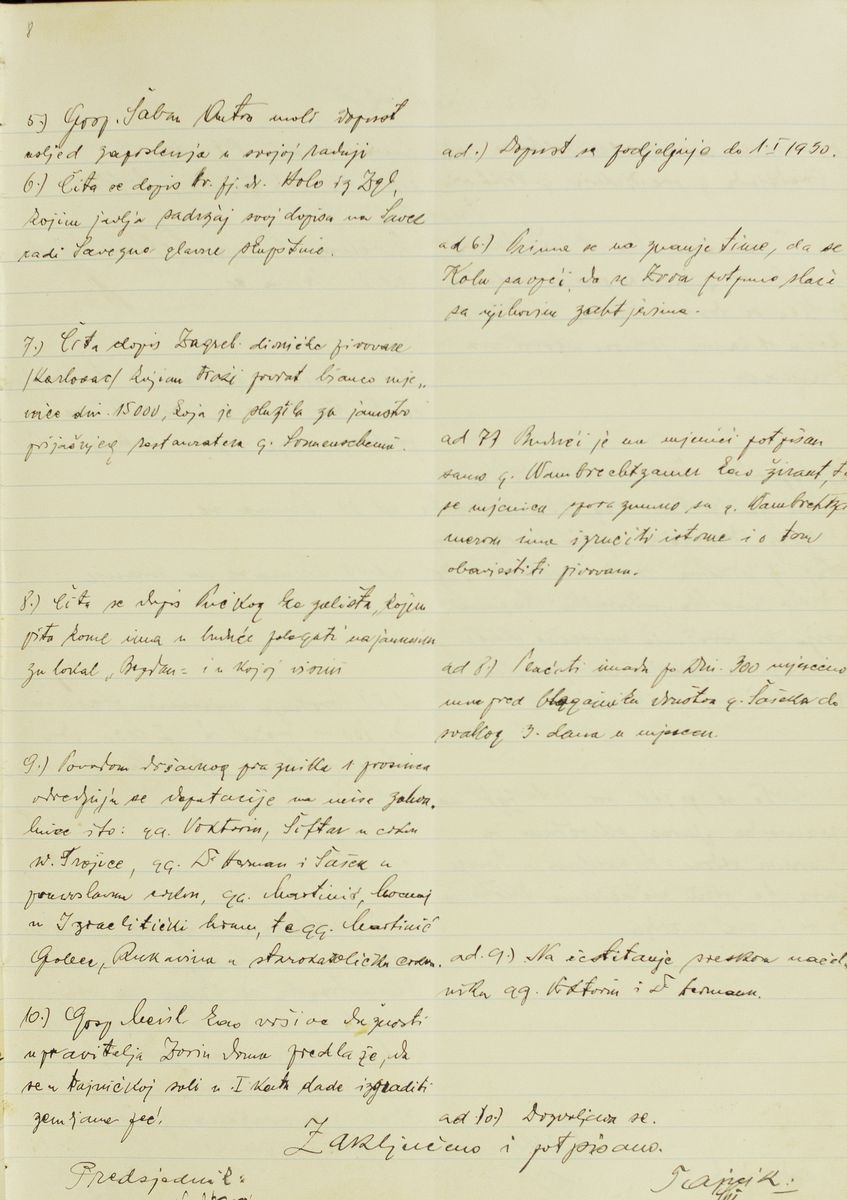 8
5.) Gosp. Šaban Antro moli dopust
usljed zaposlenja u svojoj radnji
ad.) Dopust se podjeljuje do 1. I 1930.
6.) Čita se dopis hr. pj. dr. Kolo iz Zgb.
kojim javlja sadržaj svoj dopisa na Savez
radi Savezne glavne skupštine.
ad 6.) Prima se na znanje time, da se
Kolu saopći, da se Zora potpuno slaže
sa njihovim zahtjevima.
7.) Čita dopis Zagreb. dioničke pivovare
/Karlovac/ kojom traži povrat bianco mje„
nice din. 15000, koja je služila za jamstvo
prijašnjeg restauratera g. Sonnenscheina.
ad 7) Budući je na mjenici potpisan
samo g. Wambrechtzamer kao žirant, t
se mjenica sporazumno sa g. Wambrechtza
merom ima izručiti istome i o tom
obavjestiti pivovaru.
8.) Čita se dopis Pučkog kazališta, kojim
pita kome ima u buduće polagati najamninu
za lokal „Bogdan" i u kojoj visini
ad 8.) Plaćati imadu po Din. 300 mjesečno
unapred blagajniku društva g. Šašeku do
svakog 3. dana u mjesecu.
9.) Povodom državnog praznika 1 prosinca
određuju se deputacije na mise zahva„
lnice i to: gg. Viktorin, Šiftar u crkvu
sv. Trojice, gg. Dr Herman i Šašek u
pravoslavnu crkvu, gg. Martinić, Mocnaj
u Izraelitički hram, te gg. Martinić
Golec, Rukavina u starokatoličku crkvu.
ad. 9.) Na čestitanje sreskom načel„
niku gg. Viktorin i Dr Hermann.
10.) Gosp. Meisl kao vršioc dužnosti
upravitelja Zorin doma predlaže, da
se u tajničkoj sobi u I katu dade izgraditi
zemljana peć.
ad 10.) Dozvoljava se.
Zaključeno i potpisano.
Predsjednik:
Tajnik: